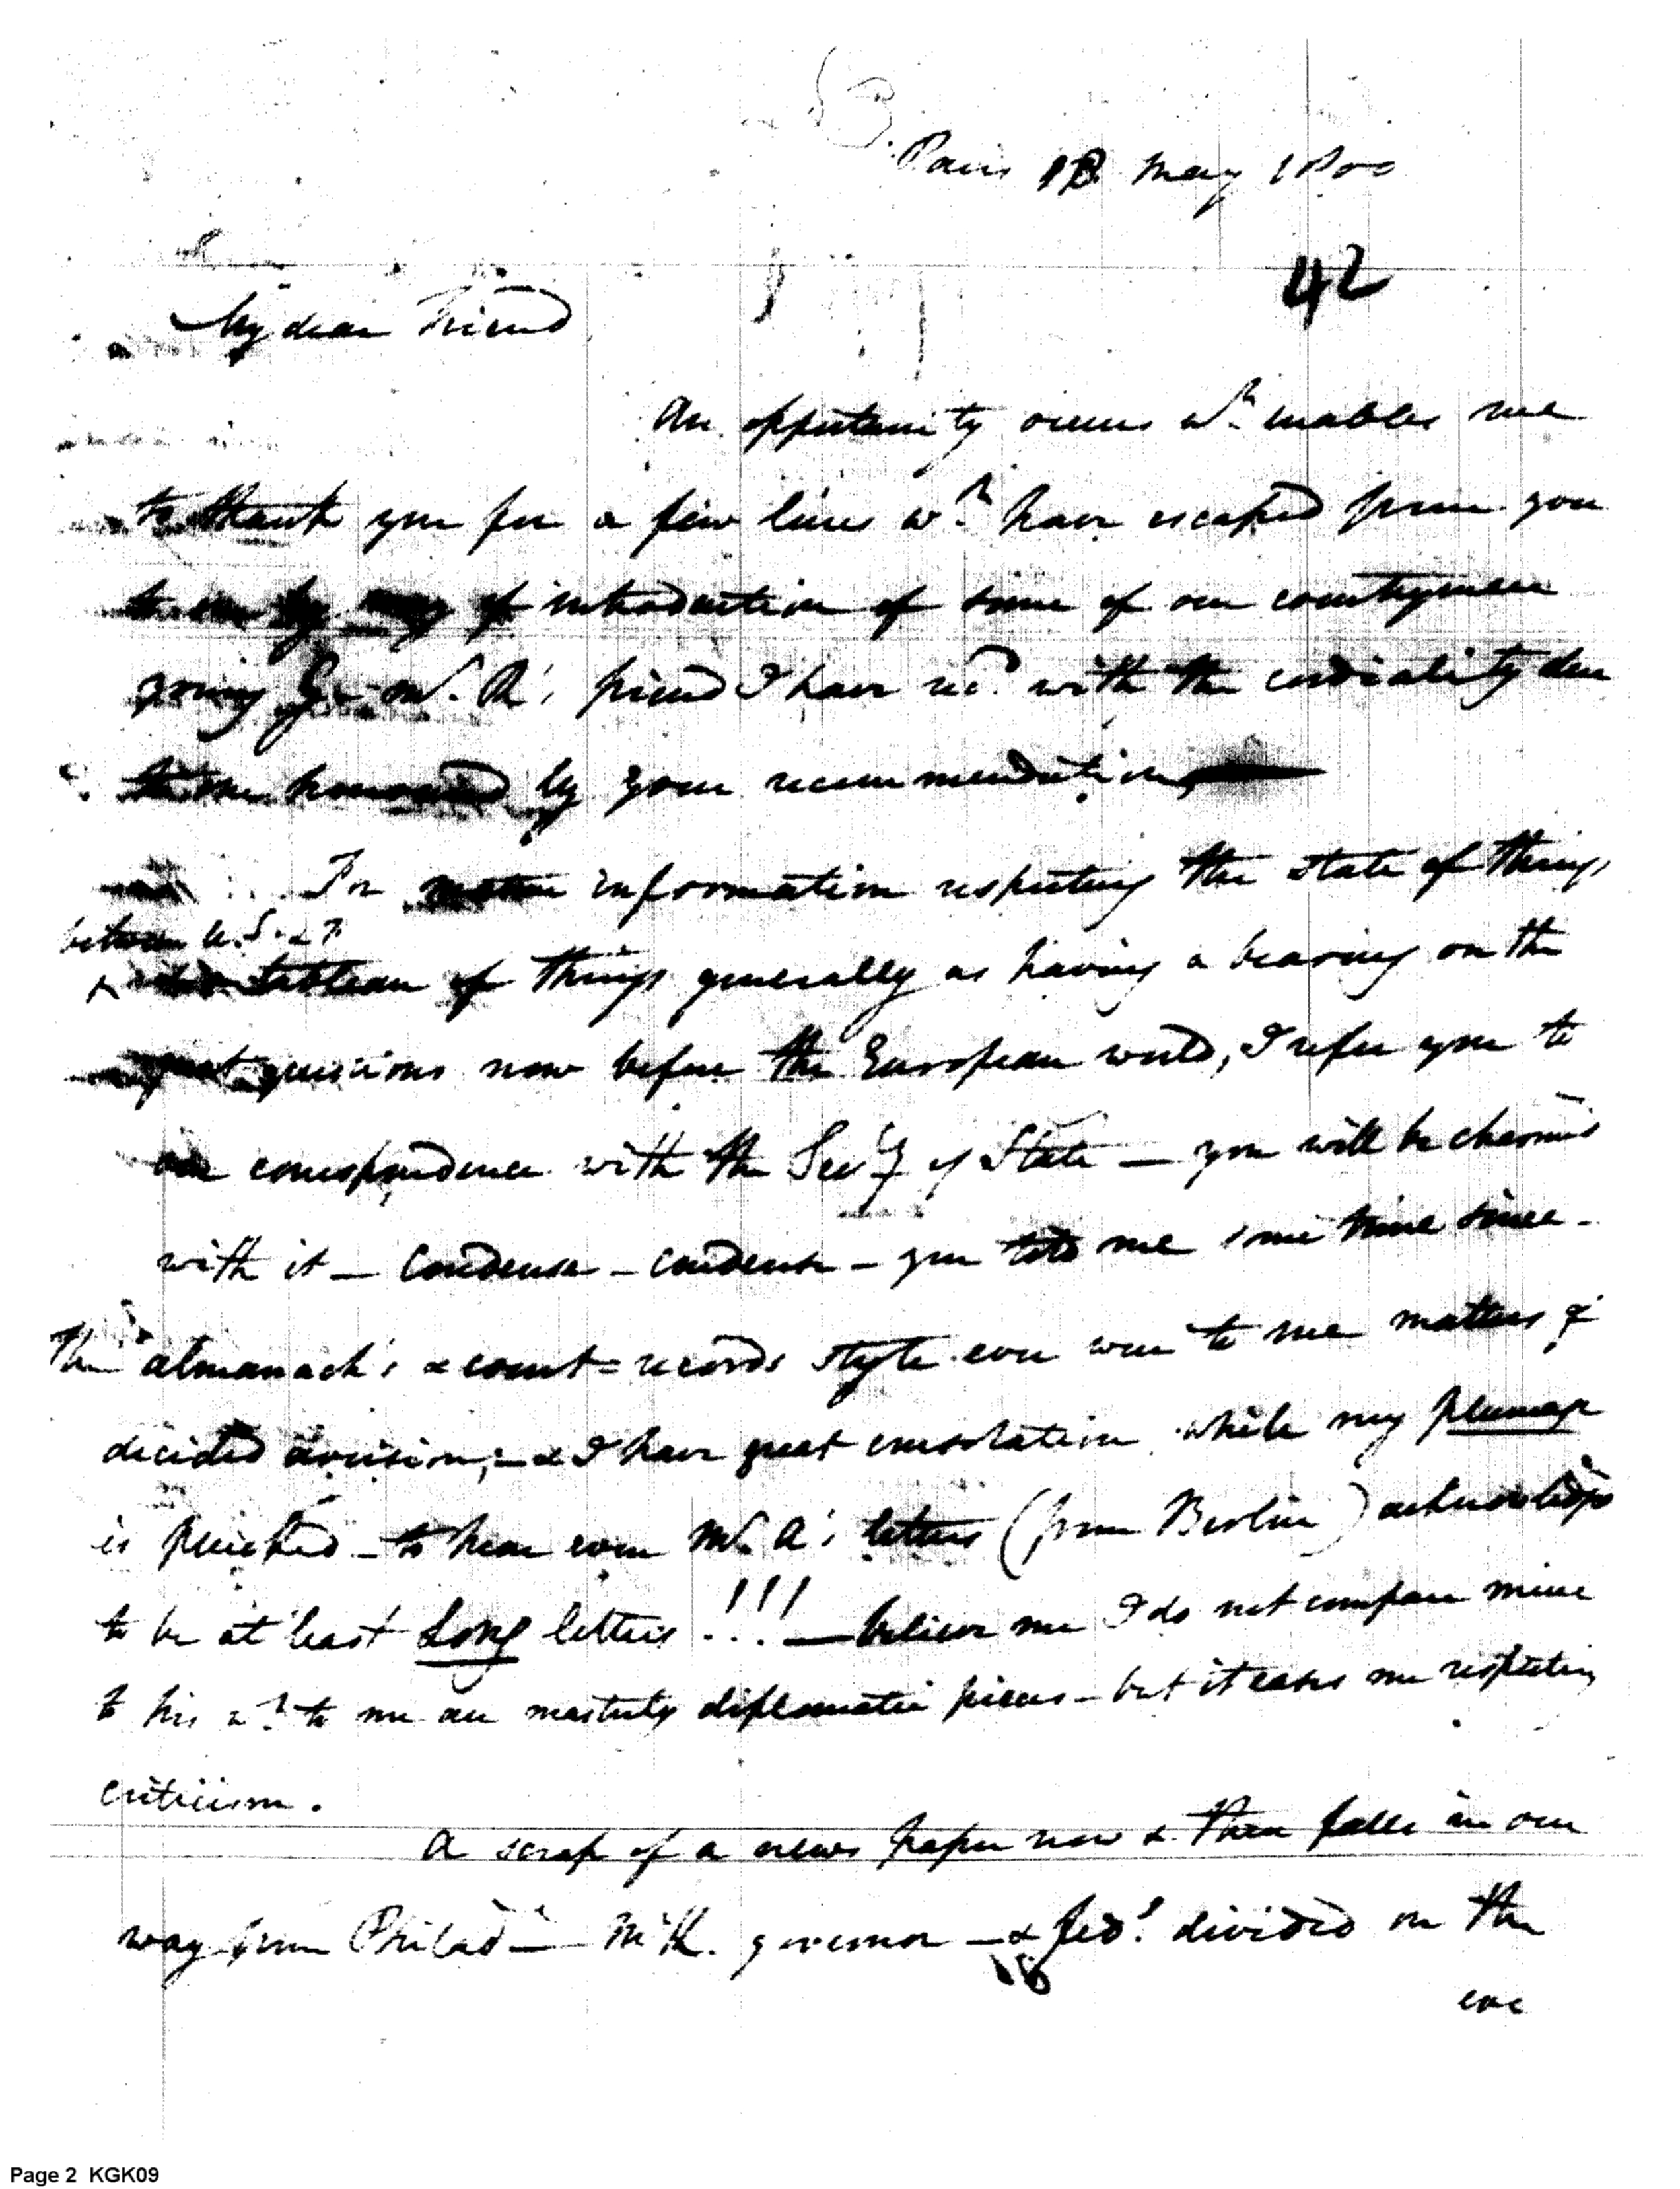 Paris 18 May 1800
42
My dear Friend
An oppertunity occurs wh. enables me
to thank you for a few lines wh. have escaped from you
to me by way of introduction of some of our countrymen
young Mr. A's friend I have recd. with the cordiality due
to one honoured by your recommendation
For information respecting the state of things
between U.S. & F.
tableau of things generally as having a bearing on the
great questions now before the European world, I refer you to
our correspondence with the Secy of State — you will be charmed
with it — Condense – condense – you told me some time since –
The almanack's & court=records style ever were to me matters of
decided division; – & I have great consolation while my plumage
is plucked – to hear even Mr. A's letters (from Berlin) acknowledged
to be at least Long letters !!! — believe me I do not compare mine
to his wh. to me are masterly diplomatic pieces – but it eases me respecting
criticism.
A scrap of a news paper now & then falls in our
way from Philad — McK. governor — & feds. divided on the
eve
Page 2 KGK09